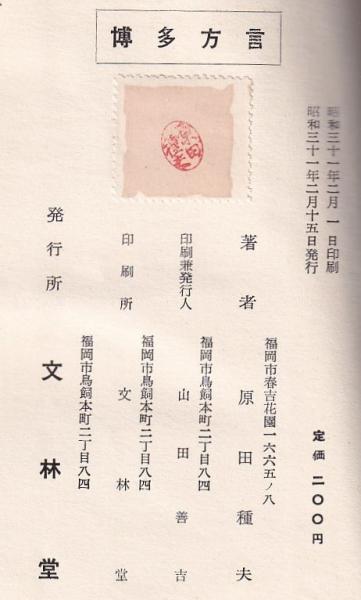 博多方言
昭和三十一年二月一日印刷
昭和三十一年二月十五日発行
定価二〇〇円
著者
福岡市春吉花園一六六五ノ八
原田種夫
印刷兼発行人
福岡市鳥飼本町二丁目八四
山田善吉
印刷所
福岡市鳥飼本町二丁目八四
文林堂
発行所
福岡市鳥飼本町二丁目八四
文林堂